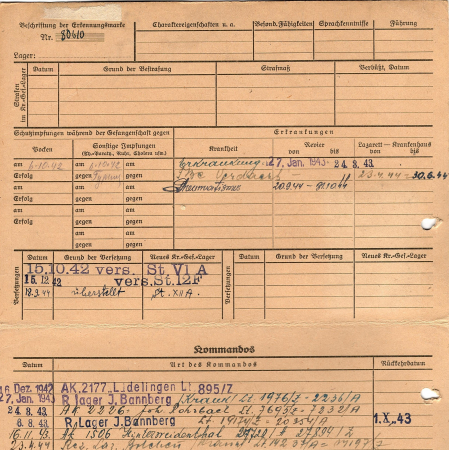 Beschriftung der Erkennungsmarke
Nr. 80610
Lager:
Charaktereigenschaften u. a.
Besond. Fähigkeiten
Sprachkenntnisse
Führung
Strafen im Kr.-Gef.-Lager
Datum
Grund der Bestrafung
Strafmaß
Verbüßt, Datum
Schutzimpfungen während der Gefangenschaft gegen
Erkrankungen
Pocken
Sonstige Impfungen
(Ty.-Paraty., Ruhr, Cholera usw.)
Krankheit
Revier
von bis
Lazarett - Krankenhaus
von bis
am 6.10.42
am 6.10.42
am
Erkrankung 27. Jan. 1943 - 24. 8. 43.
Erfolg
gegen
gegen
23.4.44 - 30.6.44
am
am
am
Rheumatismus 20.9.44
Erfolg
gegen
gegen
am
am
am
Erfolg
gegen
gegen
am
am
am
Erfolg
gegen
gegen
Versetzungen
Datum
Grund der Versetzung
Neues Kr.-Gef.-Lager
Versetzungen
Datum
Grund der Versetzung
Neues Kr.-Gef.-Lager
15.10.42 vers. St. VI A
15.12.42 vers. St. 12F
12.3.44 überstellt St. XII A.
Kommandos
Datum
Art des Kommandos
Rückkehrdatum
16. Dez. 1942 AK. 2177 Lüdelingen Lt. 895/7
27. Jan. 1943 R. lager J. Bannberg
24. 8. 43. AK 2226
6. 8. 43. R. Lager J. Bannberg
1. X. 43
16.11.43. AK 1506 Hinterweidenthal
23.4.44 Res. Laz.